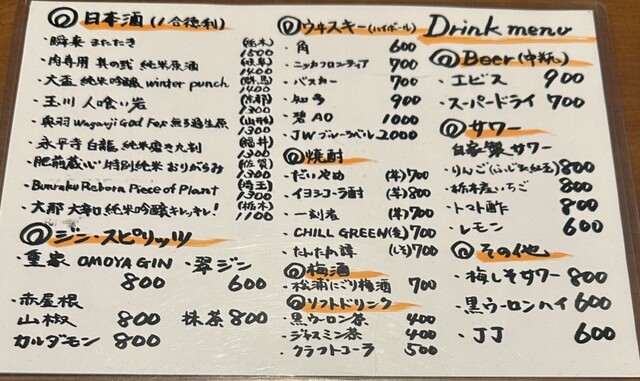 Drink menu
◎日本酒(1合徳利)
・瞬来 またたき (栃木) 1500
・肉専用 其の弐 純米原酒 (岐阜) 1400
・大盃 純米吟醸 winter punch (群馬) 1400
・玉川 人喰い岩 (京都) 1300
・奥羽 Wagauji God Fox 無ろ過生原 (山形) 1300
・永平寺 白龍 純米磨き九割 (福井) 1300
・肥前蔵心 特別純米 おりがらみ (佐賀) 1300
・Bunraku Reborn Piece of Plant (埼玉) 1300
・大那 大辛口 純米吟醸キレッキレ! (栃木) 1100
◎ジン・スピリッツ
・重家 OMOYA GIN 800
・翠ジン 600
・赤屋根
山椒 800 抹茶 800
カルダモン 800
◎ウヰスキー(ハイボール)
・角 600
・ニッカフロンティア 700
・バスカー 700
・知多 900
・碧AO 1000
・JWブルーラベル 2000
◎焼酎
・だいやめ (芋) 700
・イヨシコーラ酎 (芋) 800
・一刻者 (芋) 700
・CHILL GREEN (麦) 700
・たんたか譚 (しそ) 700
◎梅酒
松浦にごり梅酒 700
◎ソフトドリンク
・黒ウーロン茶 400
・ジャスミン茶 400
・クラフトコーラ 500
◎Beer(中瓶)
・エビス 900
・スーパードライ 700
◎サワー
自家製サワー
・りんご(ふじ&紅玉) 800
・栃木産いちご 800
・トマト酢 800
・レモン 600
◎その他
・梅しそサワー 800
・黒ウーロンハイ 600
・JJ 600